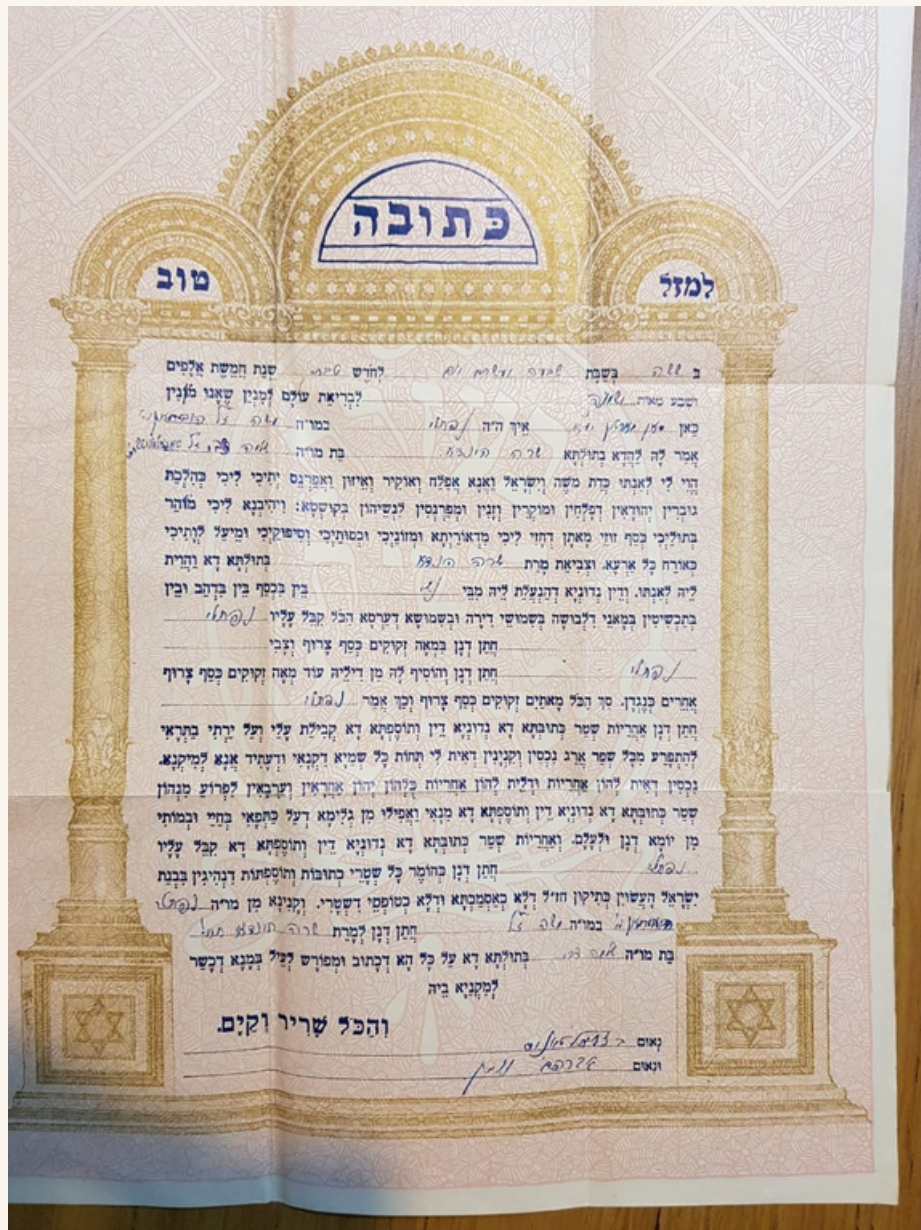 כתובה
למזל
טוב
ב ששה בשבת שבעה ועשרים יום לחדש טבת שנת חמשת אלפים
ושבע מאות ושמונה לבריאת עולם למנין שאנו מונין
כאן איך ה״ה נפתלי במו״ה משה ז״ל
אמר לה להדא בתולתא שרה הינדא בת מו״ה שלמה
הוי לי לאנתו כדת משה וישראל ואנא אפלח ואוקיר ואיזון ואפרנס יתיכי ליכי כהלכת
גוברין יהודאין דפלחין ומוקרין וזנין ומפרנסין לנשיהון בקושטא: ויהיבנא ליכי מוהר
בתוליכי כסף זוזי מאתן דחזי ליכי מדאורייתא ומזוניכי וכסותיכי וסיפוקיכי ומיעל לותיכי
כאורח כל ארעא. וצביאת מרת שרה הינדא בתולתא דא והוית
ליה לאנתו. ודין נדוניא דהנעלת ליה מבי בין בכסף בין בדהב ובין
בתכשיטין במאני דלבושה בשמושי דירה ובשמושא דערסא הכל קבל עליו נפתלי
חתן דנן במאה זקוקים כסף צרוף וצבי
נפתלי חתן דנן והוסיף לה מן דיליה עוד מאה זקוקים כסף צרוף
אחרים כנגדן. סך הכל מאתים זקוקים כסף צרוף וכך אמר נפתלי
חתן דנן אחריות שטר כתובתא דא נדוניא דין ותוספתא דא קבילת עלי ועל ירתי בתראי
להתפרע מכל שפר ארג נכסין וקנינין דאית לי תחות כל שמיא דקנאי ודעתיד אנא למיקנא.
נכסין דאית להון אחריות ודלית להון אחריות כלהון יהון אחראין וערבאין לפרוע מנהון
שטר כתובתא דא נדוניא דין ותוספתא דא מנאי ואפילו מן גלימא דעל כתפאי בחיי ובמותי
מן יומא דנן ולעלם. ואחריות שטר כתובתא דא נדוניא דין ותוספתא דא קבל עליו
נפתלי חתן דנן כחומר כל שטרי כתובות ותוספתות דנהיגין בבנת
ישראל העשוין כתיקון חז״ל דלא כאסמכתא ודלא כטופסי דשטרי. וקנינא מן מו״ה נפתלי
במו״ה משה ז״ל חתן דנן למרת שרה הינדא
בת מו״ה שלמה בתולתא דא על כל הא דכתוב ומפורש לעיל במנא דכשר
למקניא ביה
והכל שריר וקים.
נאום
ונאום אברהם